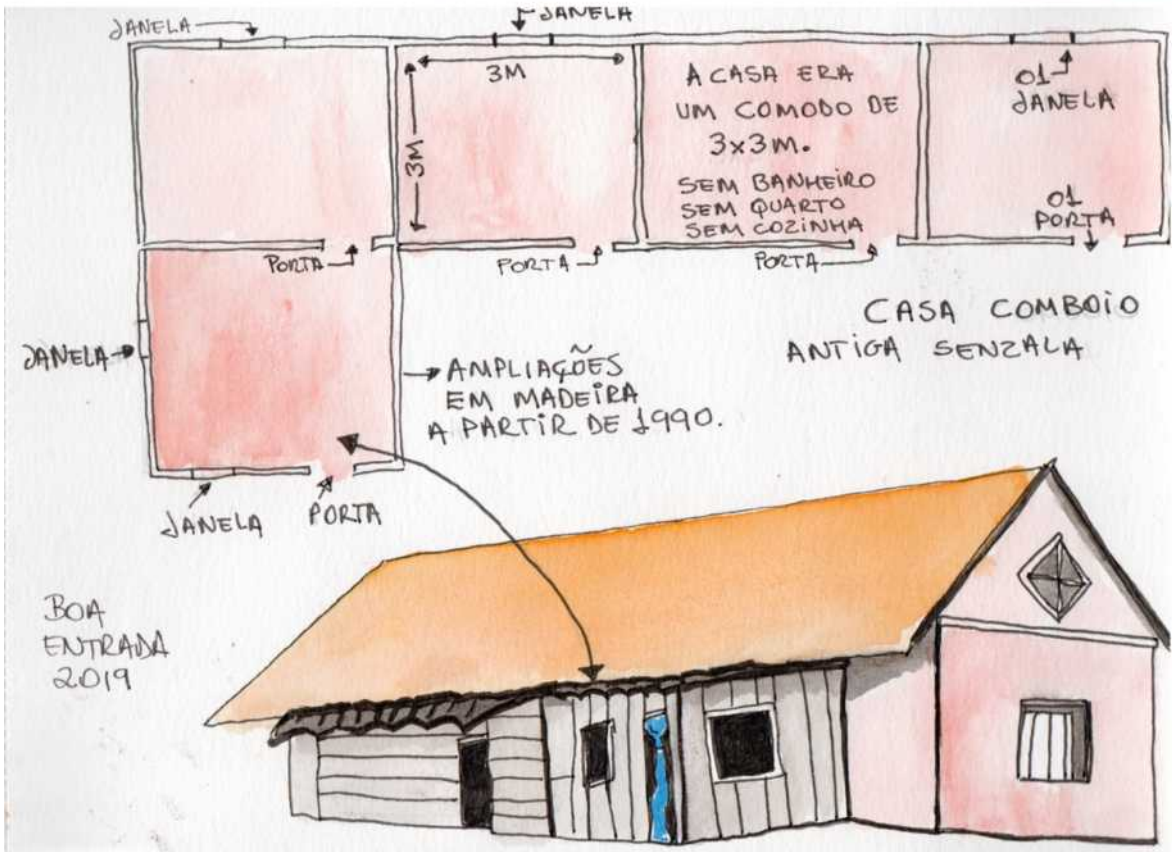 JANELA
JANELA
3M
3M
A CASA ERA
UM COMODO DE
3x3M.
SEM BANHEIRO
SEM QUARTO
SEM COZINHA
01
JANELA
01
PORTA
PORTA
PORTA
PORTA
CASA COMBOIO
ANTIGA SENZALA
JANELA
AMPLIAÇÕES
EM MADEIRA
A PARTIR DE 1990.
JANELA
PORTA
BOA
ENTRADA
2019